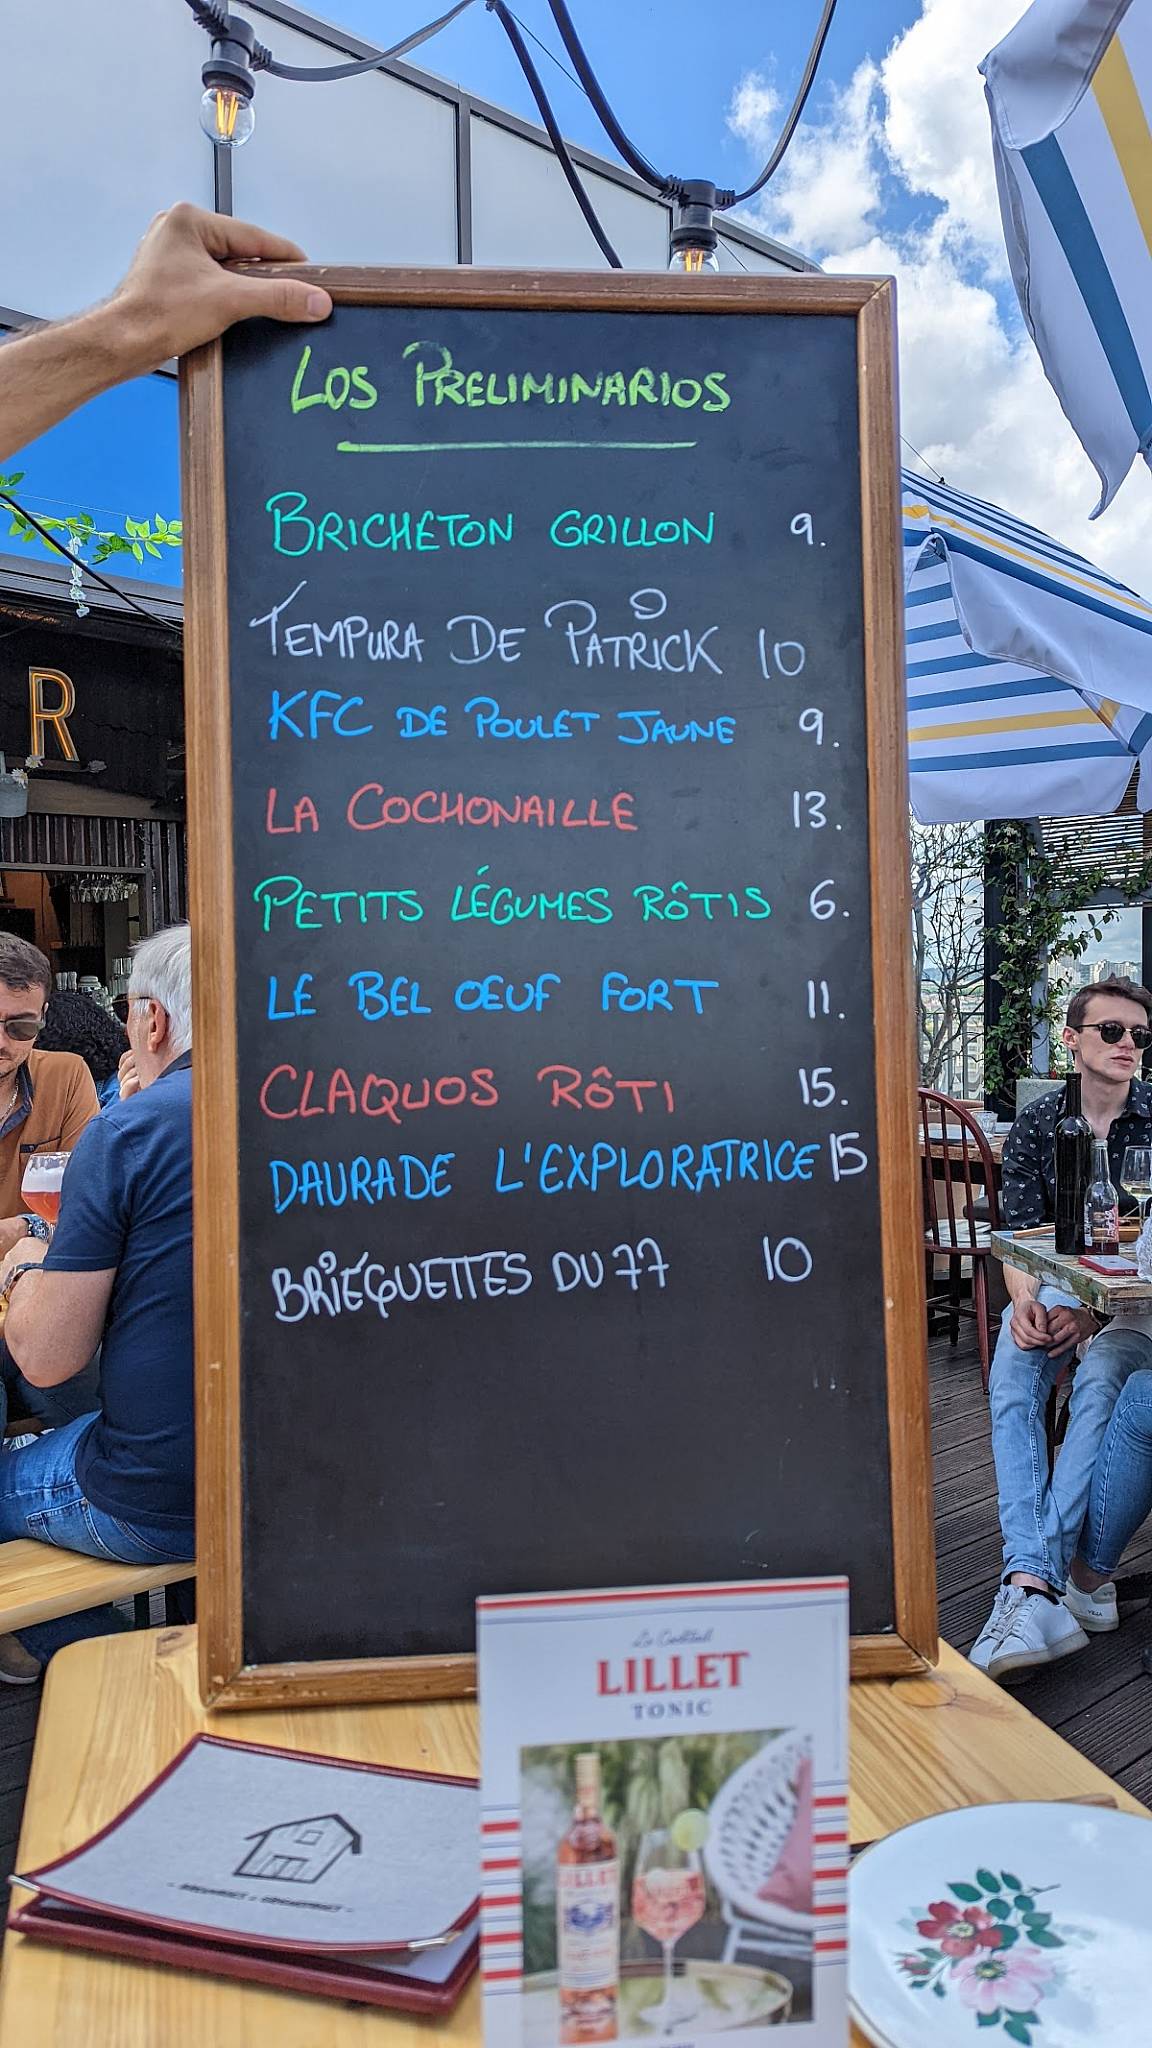 R
LOS PRELIMINARIOS
BRICHETON GRILLON 9.
TEMPURA DE PATRICK 10
KFC DE POULET JAUNE 9.
LA COCHONAILLE 13.
PETITS LÉGUMES RÔTIS 6.
LE BEL OEUF FORT 11.
CLAQUOS RÔTI 15.
DAURADE L'EXPLORATRICE 15
BRIEQUETTES DU 77 10
Le Cocktail
LILLET
TONIC
LILLET